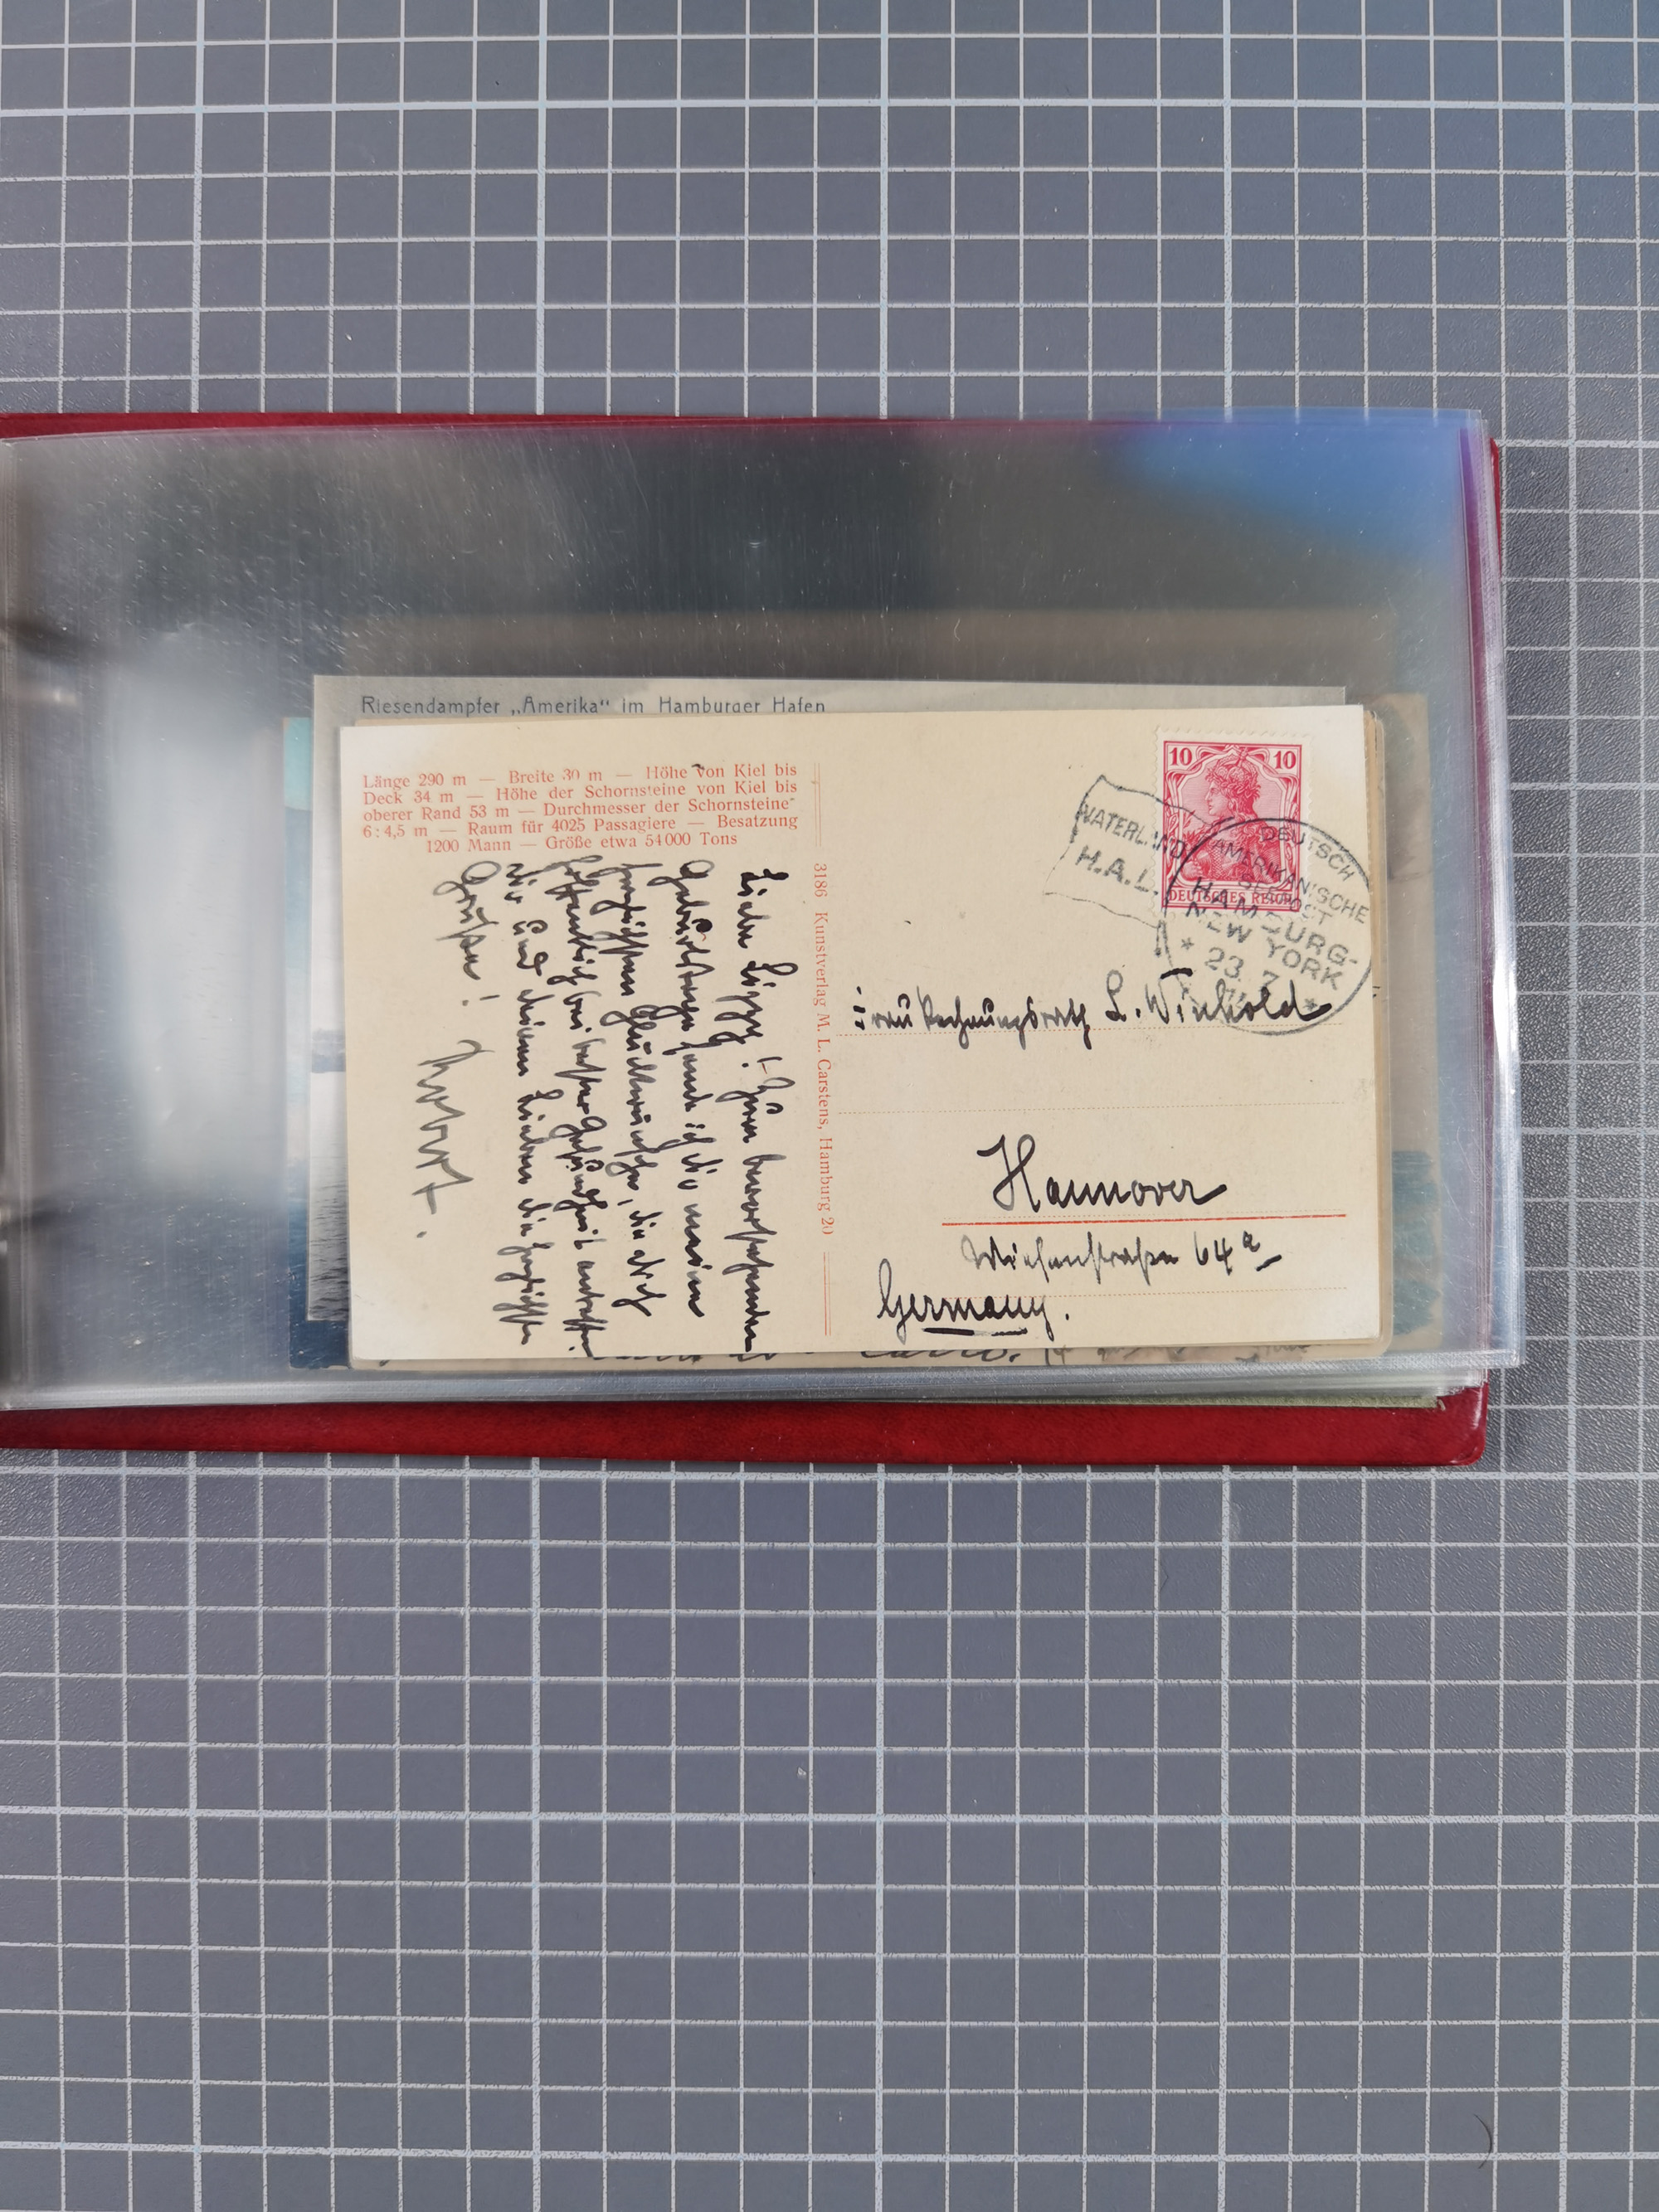 Riesendampfer „Amerika" im Hamburger Hafen
Länge 290 m — Breite 30 m — Höhe von Kiel bis
Deck 34 m — Höhe der Schornsteine von Kiel bis
oberer Rand 53 m — Durchmesser der Schornsteine
6 : 4,5 m — Raum für 4025 Passagiere — Besatzung
1200 Mann — Größe etwa 54000 Tons
Liebe Lizzy! Zum bevorstehenden
Geburtstage sende ich die meine
herzlichsten Glückwünsche, die dich
hoffentlich bei bester Gesundheit antreffen.
Dir und deinen Lieben die herzlichsten
Grüße!
Robert.
3186 Kunstverlag M. L. Carstens, Hamburg 20
10 10
DEUTSCHES REICH
VATERLAND
H.A.L.
DEUTSCH
AMERIKANISCHE
SEEPOST
HAMBURG-
NEW YORK
* 23 7 *
Frau Rechnungsrath L. Winhold
Hannover
Wiesenstraße 64a
Germany.